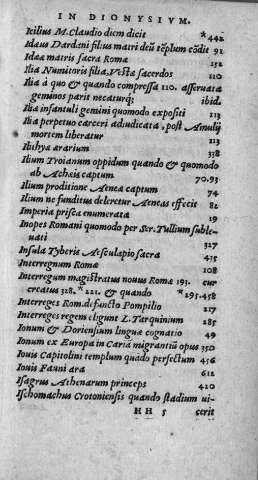 IN DIONYSIVM.
Icilius M. Claudio diem dicit *442
Idæus Dardani filius matri deũ tẽplum cõdit 91
Idæa matris sacra Romæ 152
Ilia Numitoris filia, Vestæ sacerdos 110
Ilia à quo & quando compressa 110. asseruata
geminos parit necaturq; ibid.
Iliæ infantuli gemini quomodo expositi 113
Ilia perpetuo carceri adiudicata, post Amulij
mortem liberatur 113
Ilithya ærarium 338
Ilium Troianum oppidum quando & quomodo
ab Achais captum 70.93
Ilium proditione Aeneæ captum 74
Ilium ne funditus deleretur Aeneas effecit 82
Imperia prisca enumerata 19
Inopes Romani quomodo per Ser. Tullium suble-
uati 327
Insula Tyberis Aesculapio sacra 435
Interregnum Romæ 108
Interregum magistratus nouus Romæ 193. cur
creatus 328. * 221. & quando *193.458
Interreges Rom. defuncto Pompilio 217
Interreges regem eligunt L. Tarquinium 285
Ionum & Doriensium linguæ cognatio 49
Ionum ex Europa in Cariã migrantiũ opus 350
Iouis Capitolini templum quãdo perfectum 456
Iouis Fauni ara 612
Isagras Athenarum princeps 420
Ischomachus Crotoniensis quando stadium ui-
HH 5 cerit